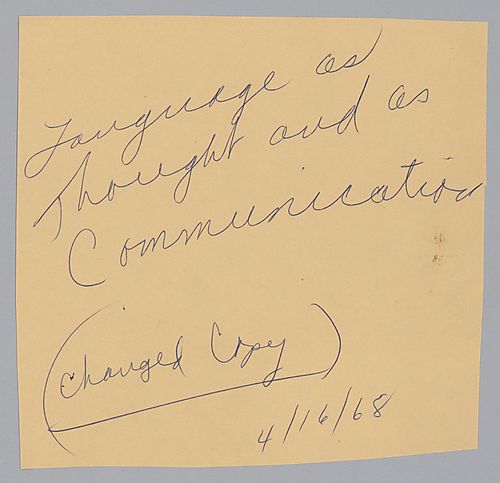 Language as
Thought and as
Communication
(Changed Copy)
4/16/68